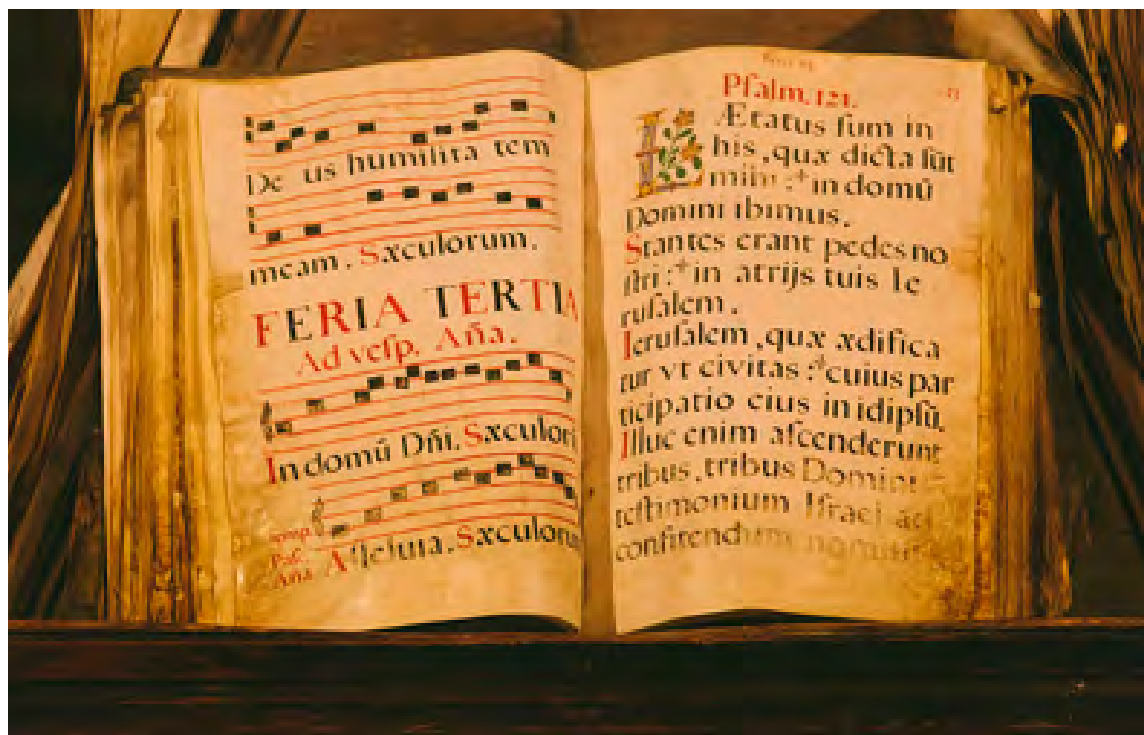 De us humilita tem
meam. Sæculorum.
FERIA TERTIA
Ad veſp. Aña.
In domū Dñi. Sæculor
Paſ.
Aña Alleluia. Sæculorum
Pſalm. 121.
LÆtatus ſum in
his, quæ dicta ſūt
mihi :* in domū
Domini ibimus.
Stantes erant pedes no
ſtri :* in atrijs tuis Ie
ruſalem.
Ieruſalem, quæ ædifica
tur vt civitas :* cuius par
ticipatio eius in idipſū.
Illuc enim aſcenderunt
tribus, tribus Domini
teſtimonium Iſrael ad
confitendum nomini